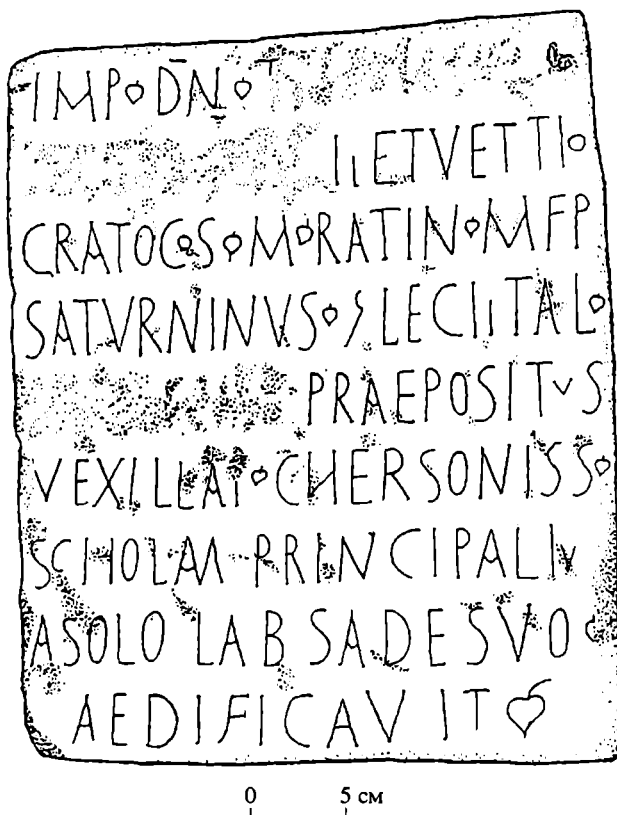 IMP DN
II ET VETTI
CRATO COS M RATIN M F P
SATVRNINVS LEG II ITAL
PRAEPOSITVS
VEXILLAT CHERSONISS
SCHOLAM PRINCIPALIV
A SOLO LABSA DE SVO
AEDIFICAVIT
0 5 см